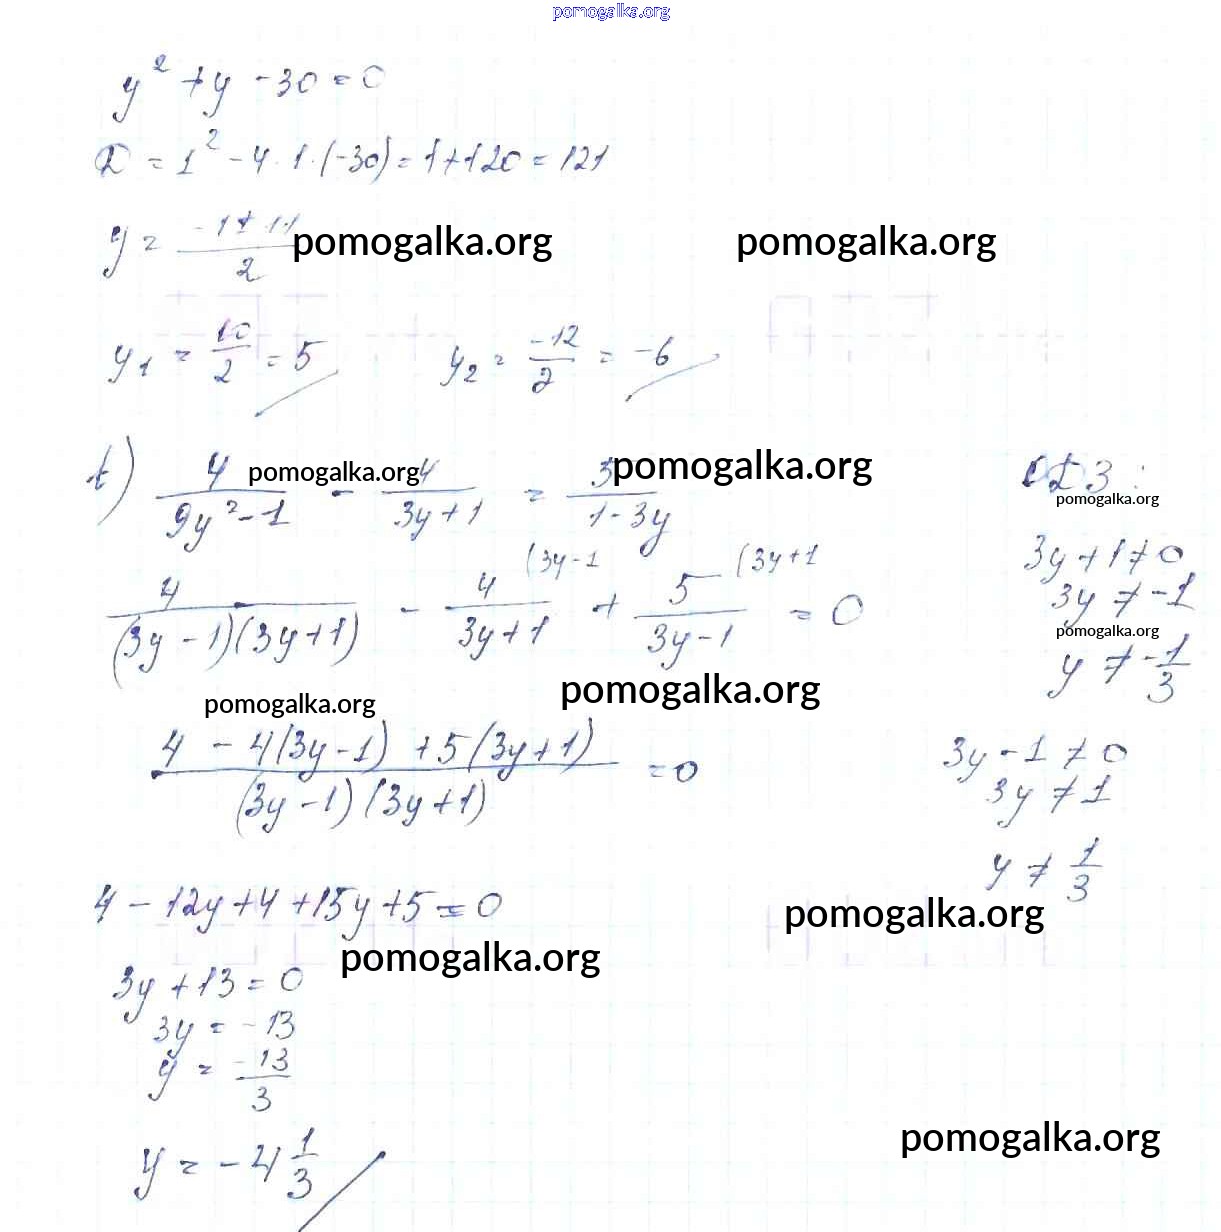 pomogalka.org
y² + y - 30 = 0
D = 1² - 4 · 1 · (-30) = 1 + 120 = 121
y = (-1 ± 11)/2 pomogalka.org pomogalka.org
y₁ = 10/2 = 5 y₂ = -12/2 = -6
4/(9y² - 1) - 4/(3y + 1) = 5/(1 - 3y) ОДЗ:
pomogalka.org pomogalka.org pomogalka.org
3y + 1 ≠ 0
(3y - 1 (3y + 1
4/((3y - 1)(3y + 1)) - 4/(3y + 1) + 5/(3y - 1) = 0
3y ≠ -1
pomogalka.org
y ≠ -1/3
pomogalka.org pomogalka.org
(4 - 4(3y - 1) + 5(3y + 1))/((3y - 1)(3y + 1)) = 0
3y - 1 ≠ 0
3y ≠ 1
y ≠ 1/3
4 - 12y + 4 + 15y + 5 = 0 pomogalka.org
pomogalka.org
3y + 13 = 0
3y = -13
y = -13/3
y = -4 1/3
pomogalka.org